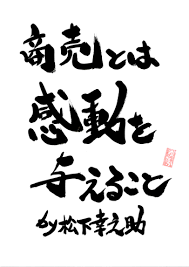 商売とは
感動を
与えること
by松下幸之助